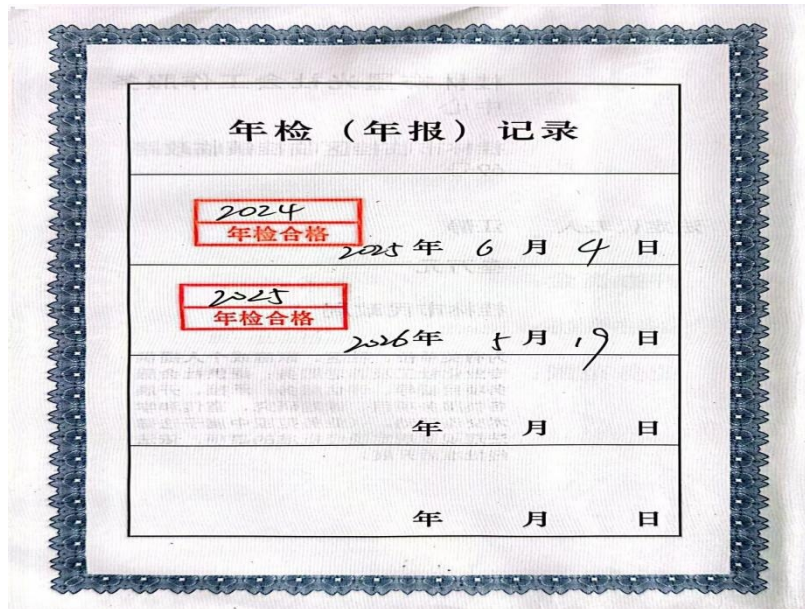 年检（年报）记录
2024
年检合格
2025年 6月 4日
2025
年检合格
2026年 5月 19日
年 月 日
年 月 日